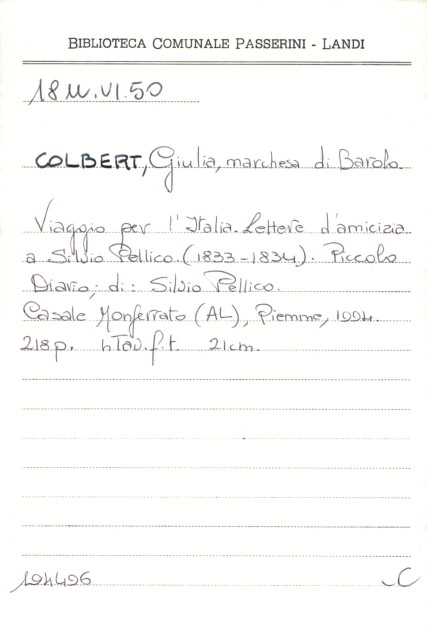 BIBLIOTECA COMUNALE PASSERINI - LANDI
18 M.VI.50
COLBERT, Giulia, marchesa di Barolo.
Viaggio per l'Italia. Lettere d'amicizia
a Silvio Pellico. (1833-1834). Piccolo
Diario; di: Silvio Pellico.
Casale Monferrato (AL), Piemme, 1994.
218 p. 4 Tav. f.t. 21 cm.
194496
C